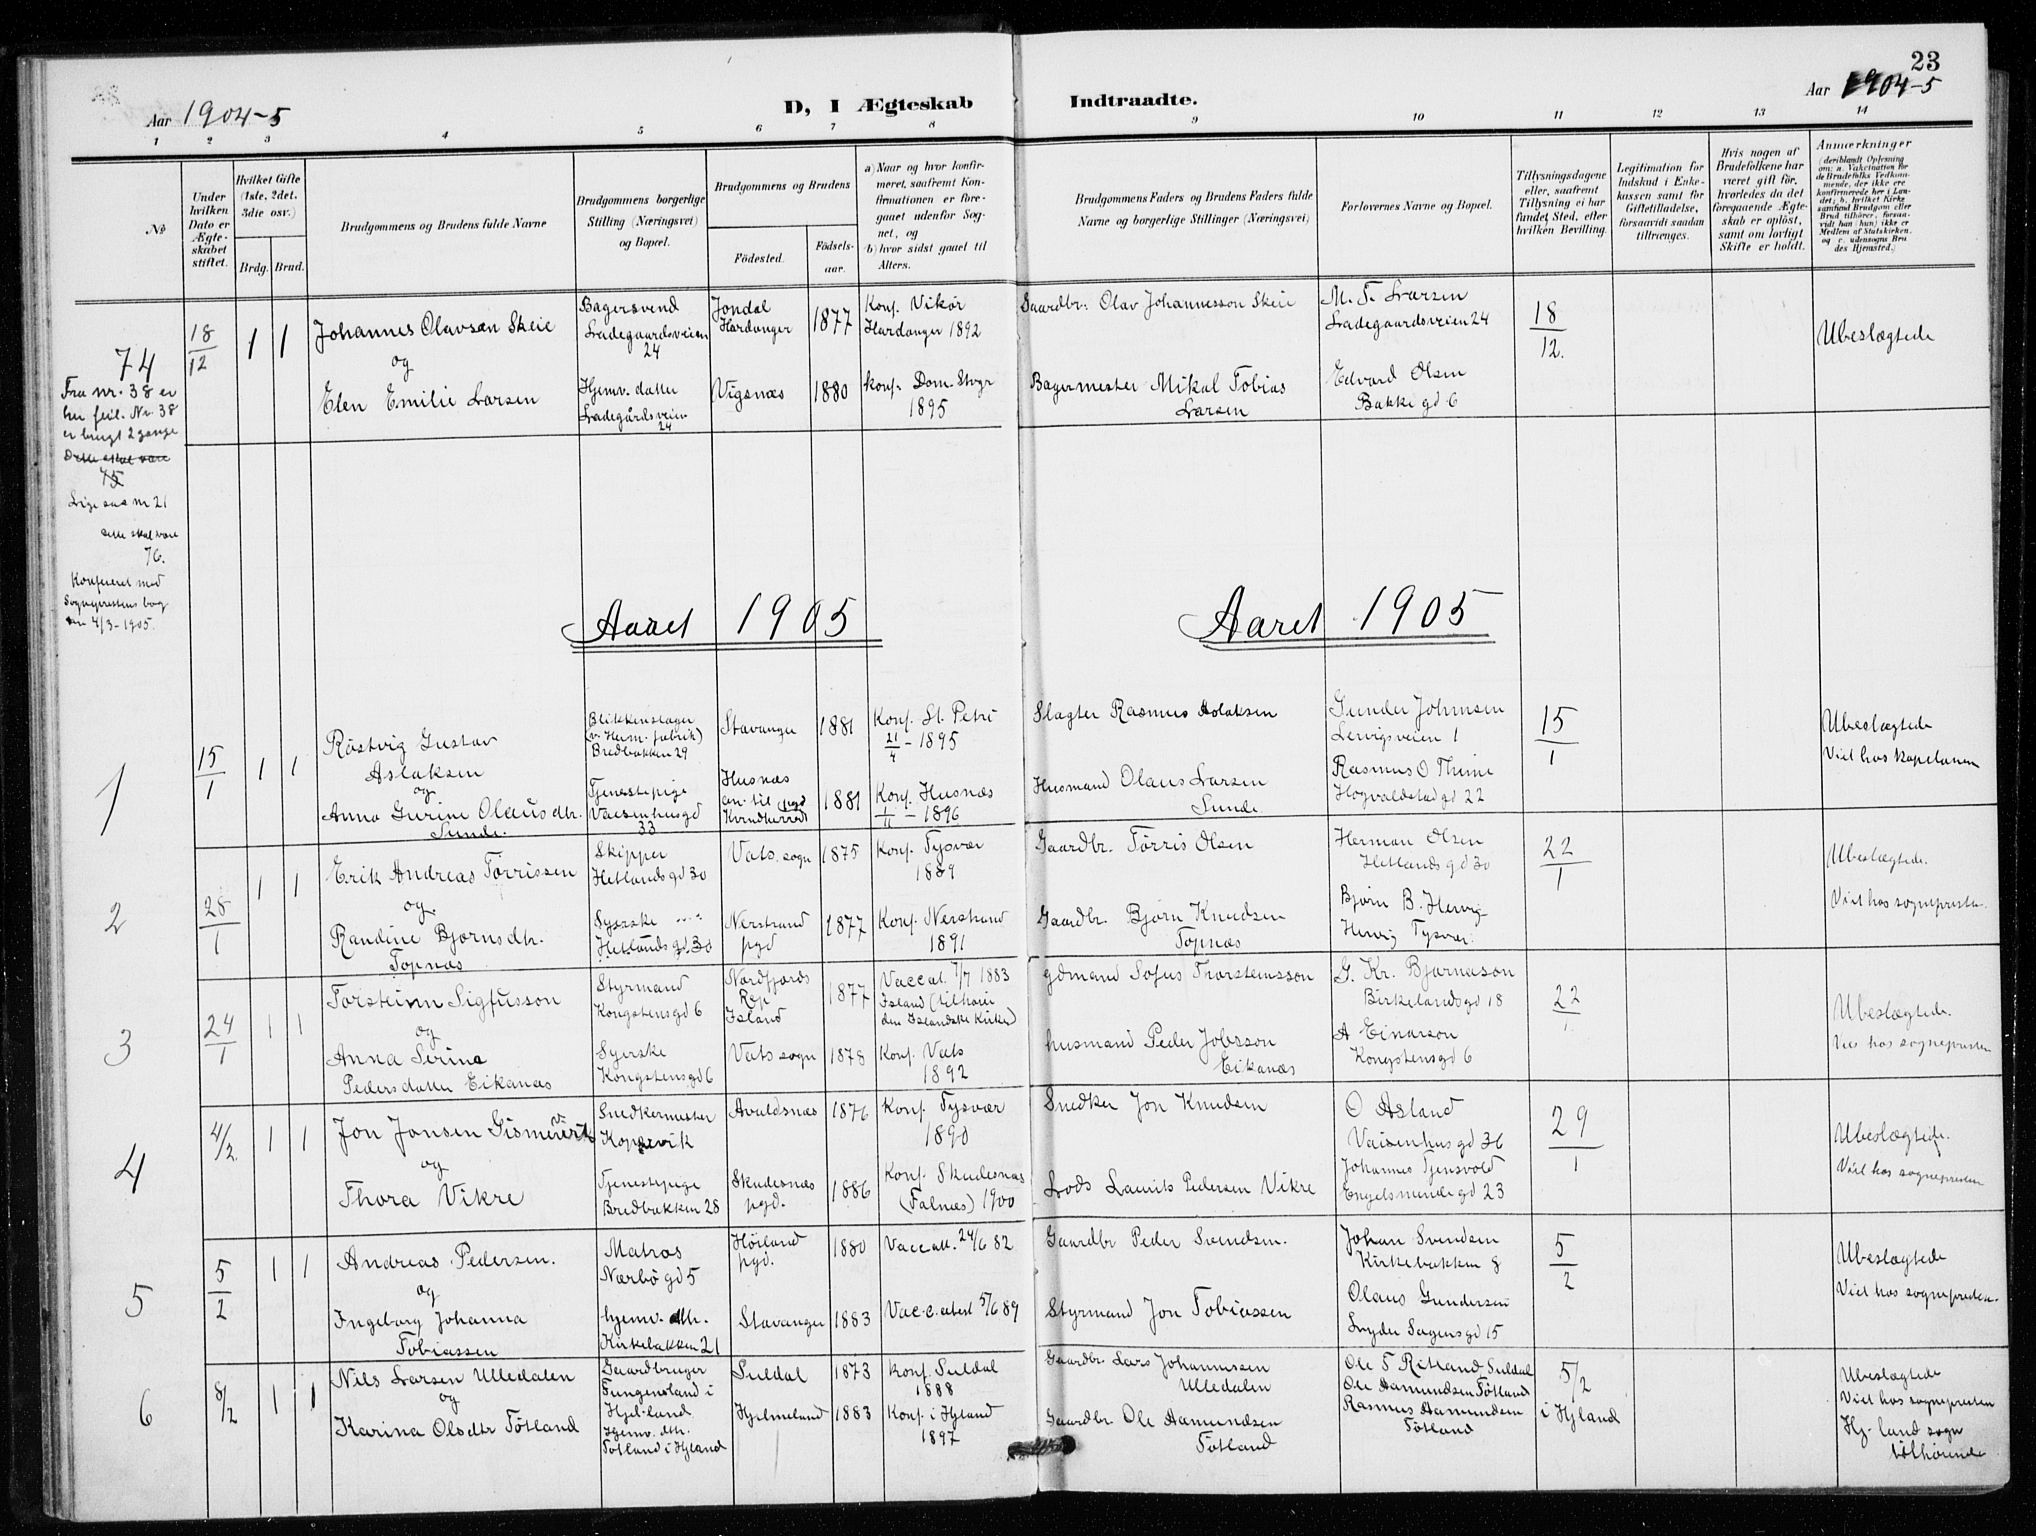 23
Aar 1904-5
D, I Ægteskab
Indtraadte.
Aar 1904-5
1 2 3 4 5 6 7 8 9 10 11 12 13 14
No
Under hvilken Dato er Ægteskabet stiftet.
Hvilket Gifte (1ste, 2det, 3die osv.)
Brdg. Brud.
Brudgommens og Brudens fulde Navne
Brudgommens borgerlige Stilling (Næringsvei) og Bopæl.
Brudgommens og Brudens
Fødested.
Fødselsaar.
a) Naar og hvor konfirmeret, saafremt Konfirmationen er foregaaet udenfor Sognet, og
b) hvor sidst gaaet til Alters.
Brudgommens Faders og Brudens Faders fulde Navne og borgerlige Stillinger (Næringsvei)
Forlovernes Navne og Bopæl.
Tillysningsdagene eller, saafremt Tillysning ei har fundet Sted, efter hvilken Bevilling.
Legitimation for Indskud i Enkekassen samt for Giftetilladelse, forsaavidt saadan tiltrænges.
Hvis nogen af Brudefolkene har været gift før, hvorledes da det foregaaende Ægteskab er opløst, samt om lovligt Skifte er holdt.
Anmærkninger
(deriblandt Oplysning om: a. Vakcination for de Brudefolks Vedkommende, der ikke ere konfirmerede her i Landet; b. hvilket Kirkesamfund Brudgom eller Brud tilhører, forsaavidt han (hun) ikke er Medlem af Statskirken, og c. udensogns Brudes Hjemsted.)
74
Fra nr. 38 er
her feil. Nr. 38
er brugt 2 gange
Dette skal være
75
Lige saa nr 21
dette skal være
76.
Konfereret med
Sogneprestens bog
den 4/3-1905.
18/12 1 1
Johannes Olavsen Skeie
og
Elen Emilie Larsen
Bagersvend
Ladegaardsveien
24
Hjemv. datter
Ladegårdsveien
24
Jondal
Hardanger
1877
Vigsnæs
1880
Konf. Vikør
Hardanger 1892
konf. Dom. Stvgr
1895
Gaardbr. Olav Johannesson Skeie
Bagermester Mikal Tobias
Larsen
M. T. Larsen
Ladegaardsveien 24
Edvard Olsen
Bakkegd 6
18/12.
Ubeslægtede
Aaret 1905
Aaret 1905
1
15/1 1 1
Röstvig Gustav
Aslaksen
og
Anna Gurine Olausdtr.
Sunde.
Blikkenslager
(v. Herm. fabrik)
Bredbakken 29
Tjenestepige
Vaisenhusgd
33
Stavanger 1881
Husnæs
an. til pgd
Kvindherred
1881
Konf. St. Petri
21/4 - 1895
Konf. Husnæs
1/11 - 1896
Slagter Rasmus Aslaksen
Husmand Olaus Larsen
Sunde.
Gunder Johnsen
Lervigsveien 1
Rasmus O Thime
Hogvaldstadgd 22
15/1
Ubeslægtede
Viet hos kapelanen
2
28/1 1 1
Erik Andreas Tørrissen
og
Randine Bjørnsdtr.
Topnæs
Skipper
Hetlandsgd 30
Syerske
Hetlandsgd 30
Vats. sogn 1875
Nerstrand
pgd
1877
Konf. Tysvær
1889
Konf. Nerstrand
1891
Gaardbr. Tørris Olsen
Gaardbr. Bjørn Knudsen
Topnæs
Herman Olsen
Hetlandsgd 30
Bjørn B. Hervig
Hervig Tysvær
22/1
Ubeslægtede.
Viet hos sognepresten.
3
24/1 1 1
Torsteinn Sigfusson
og
Anna Serina
Pedersdatter Eikanæs
Styrmand
Kongstensgd 6
Syerske
Kongstensgd 6
Nordfjords
Rep
Island
1877
Vats sogn 1878
Vaccat. 7/7 1883
Island (tilhører
den Islandske Kirke)
Konf. Vats
1892
gdmand Sofus Thorsteinsson
husmand Peder Jobsson
Eikanæs
G. Kr. Bjarnason
Birkelandsgd 18
A Einarson
Kongstensgd 6
22/1
Ubeslægtede.
Viet hos sognepresten
4
4/2. 1 1
Jon Jonsen Gismervik
og
Thora Vikre
Snedkermester
Kopervik
Tjenestepige
Bredbakken 28
Avaldsnæs 1876
Skudesnæs
pgd.
1886
Konf. Tysvær
1890
Konf. Skudesnæs
(Falnæs) 1900
Snedker Jon Knudsen
Lods Laurits Pedersen Vikre
O Asland
Vaisenhusgd 36
Johannes Tjensvold
Engelsmindegd 23
29/1
Ubeslægtede.
Viet hos sognepresten
5
5/2 1 1
Andreas Pedersen.
og
Ingeborg Johanna
Tobiassen
Matros
Nærbøgd 5
hjemv. dtr.
Kirkebakken 21
Høiland
pgd.
1880
Stavanger 1883
Vaccatt. 24/6 82
Vacc. attest 5/6 89
Gaardbr Peder Svendsen.
Styrmand Jon Tobiassen
Johan Svendsen
Kirkebakken 8
Olaus Gundersen
Lyder Sagensgd 15
5/2
Ubeslægtede
Viet hos sognepresten.
6
8/2 1 1
Nils Larsen Ulledalen
og
Karina Olsdtr Tøtland
Gaardbruger
Fungensland i
Hjelmland
Hjemv. dtr.
Tøtland i Hjland
Suldal 1873
Hjelmeland 1883
Konf. Suldal
1888
Konf. i Hjland
1897
Gaardbr. Lars Johannessen
Ulledalen
Gaardbr. Ole Aamundsen
Tøtland
Ole T Ritland Suldal
Ole Aamundsen Tøtland
Rasmus Aamundsen
Tøtland
5/2
i Hjland
Ubeslægtede
Viet hos sognepresten
Hj-land sogn
tilhørende